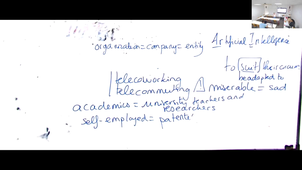 organisation=company= entity
Artificial Intelligence
to suit their own
be adapted to
telecoworking
telecommuting
miserable = sad
academics = university teachers and
researchers
self-employed =